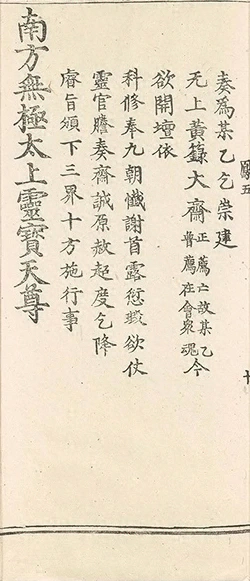 奏為某乙乞崇建
无上黃籙大齋正薦亡故某乙普薦在會眾魂今
欲開壇依
科修奉九朝懺謝首露愆瑕欲仗
靈官謄奏齋誠原赦超度乞降
睿旨頒下三界十方施行事
南方無極太上靈寶天尊